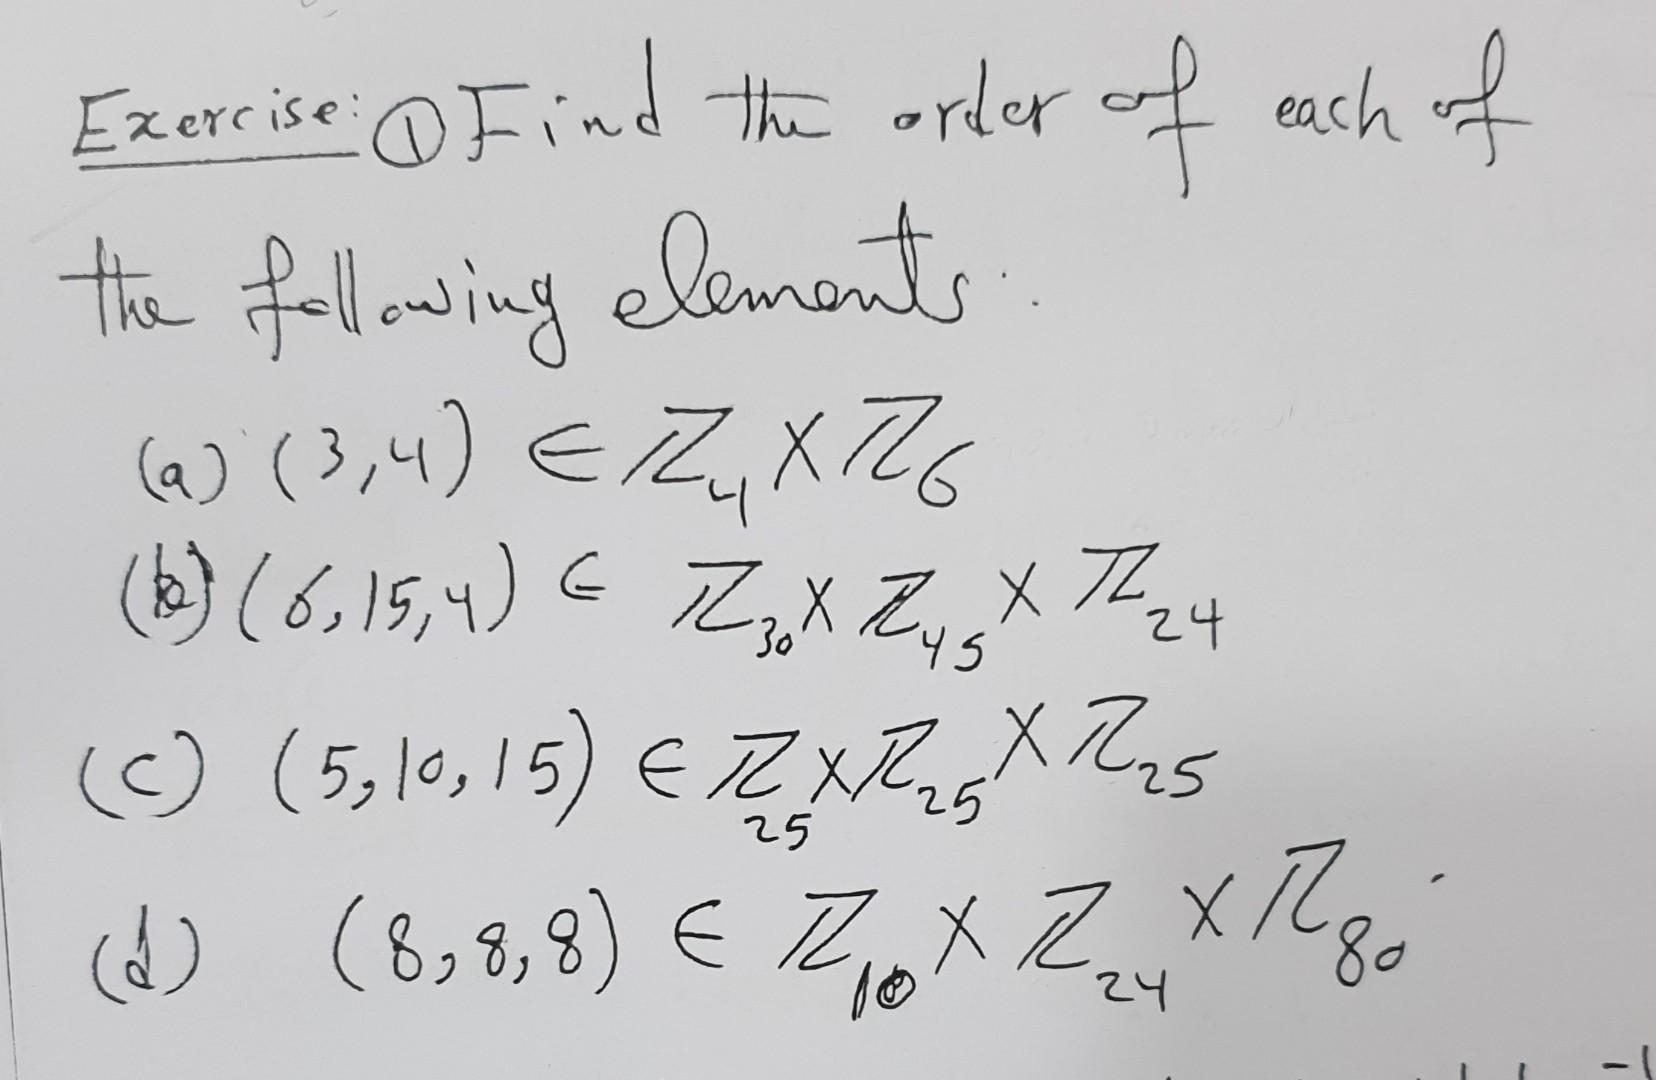 Exercise: ① Find the order of each of
the following elements.
(a) (3,4) ∈ ℤ₄ × ℤ₆
(b) (6,15,4) ∈ ℤ₃₀ × ℤ₄₅ × ℤ₂₄
(c) (5,10,15) ∈ ℤ₂₅ × ℤ₂₅ × ℤ₂₅
(d) (8,8,8) ∈ ℤ₁₀ × ℤ₂₄ × ℤ₈₀.